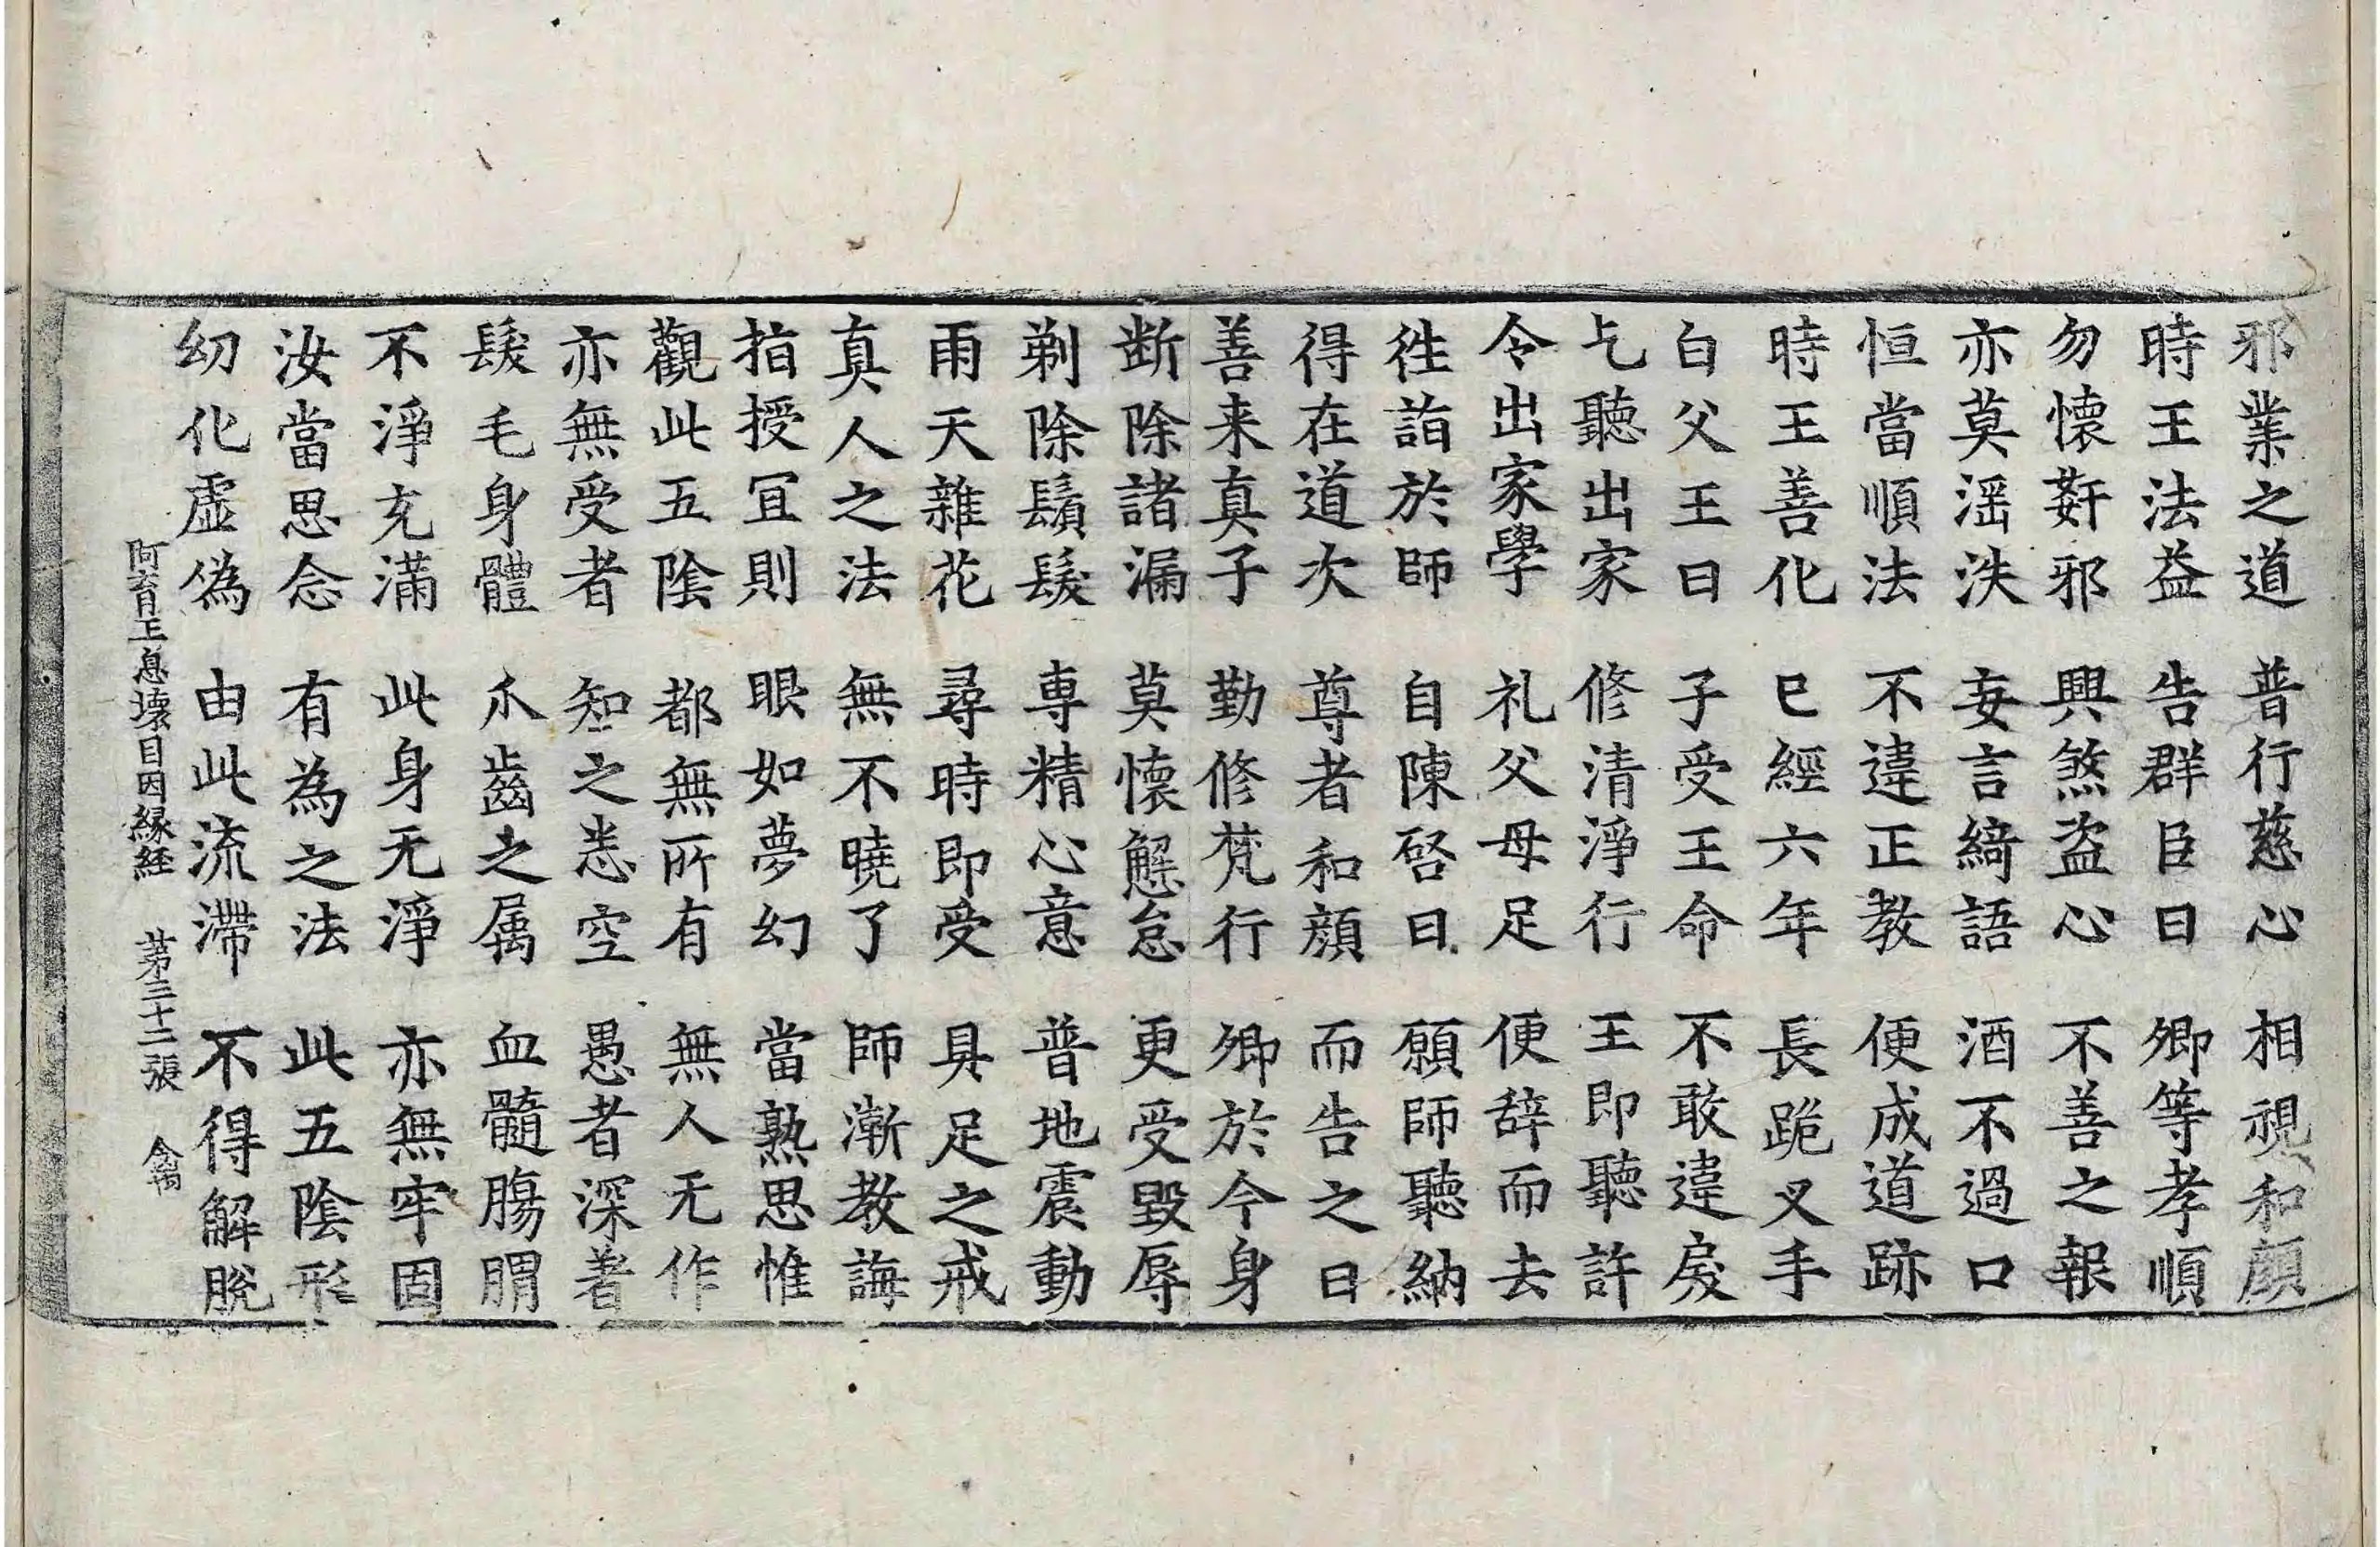 邪業之道 普行慈心 相視和顔
時王法益 告群臣曰 卿等孝順
勿懷姧邪 興煞盗心 不善之報
亦莫滛泆 妄言綺語 酒不過口
恒當順法 不違正教 便成道跡
時王善化 已經六年 長跪叉手
白父王曰 子受王命 不敢違戾
乞聽出家 修清淨行 王即聽許
令出家學 礼父母足 便辞而去
徃詣於師 自陳啓曰 願師聽納
得在道次 尊者和顔 而告之曰
善来真子 勤修梵行 卿於今身
断除諸漏 莫懷懈怠 更受毀辱
剃除鬚髮 專精心意 普地震動
雨天雜花 尋時即受 具足之戒
真人之法 無不曉了 師漸教誨
指授冝則 眼如夢幻 當熟思惟
觀此五陰 都無所有 無人无作
亦無受者 知之悉空 愚者深著
髮毛身體 爪齒之属 血髓膓䐜
不淨充滿 此身无淨 亦無牢固
汝當思念 有為之法 此五陰形
幻化虛偽 由此流滯 不得解脫
阿育王息壞目因緣経 苐三十二張